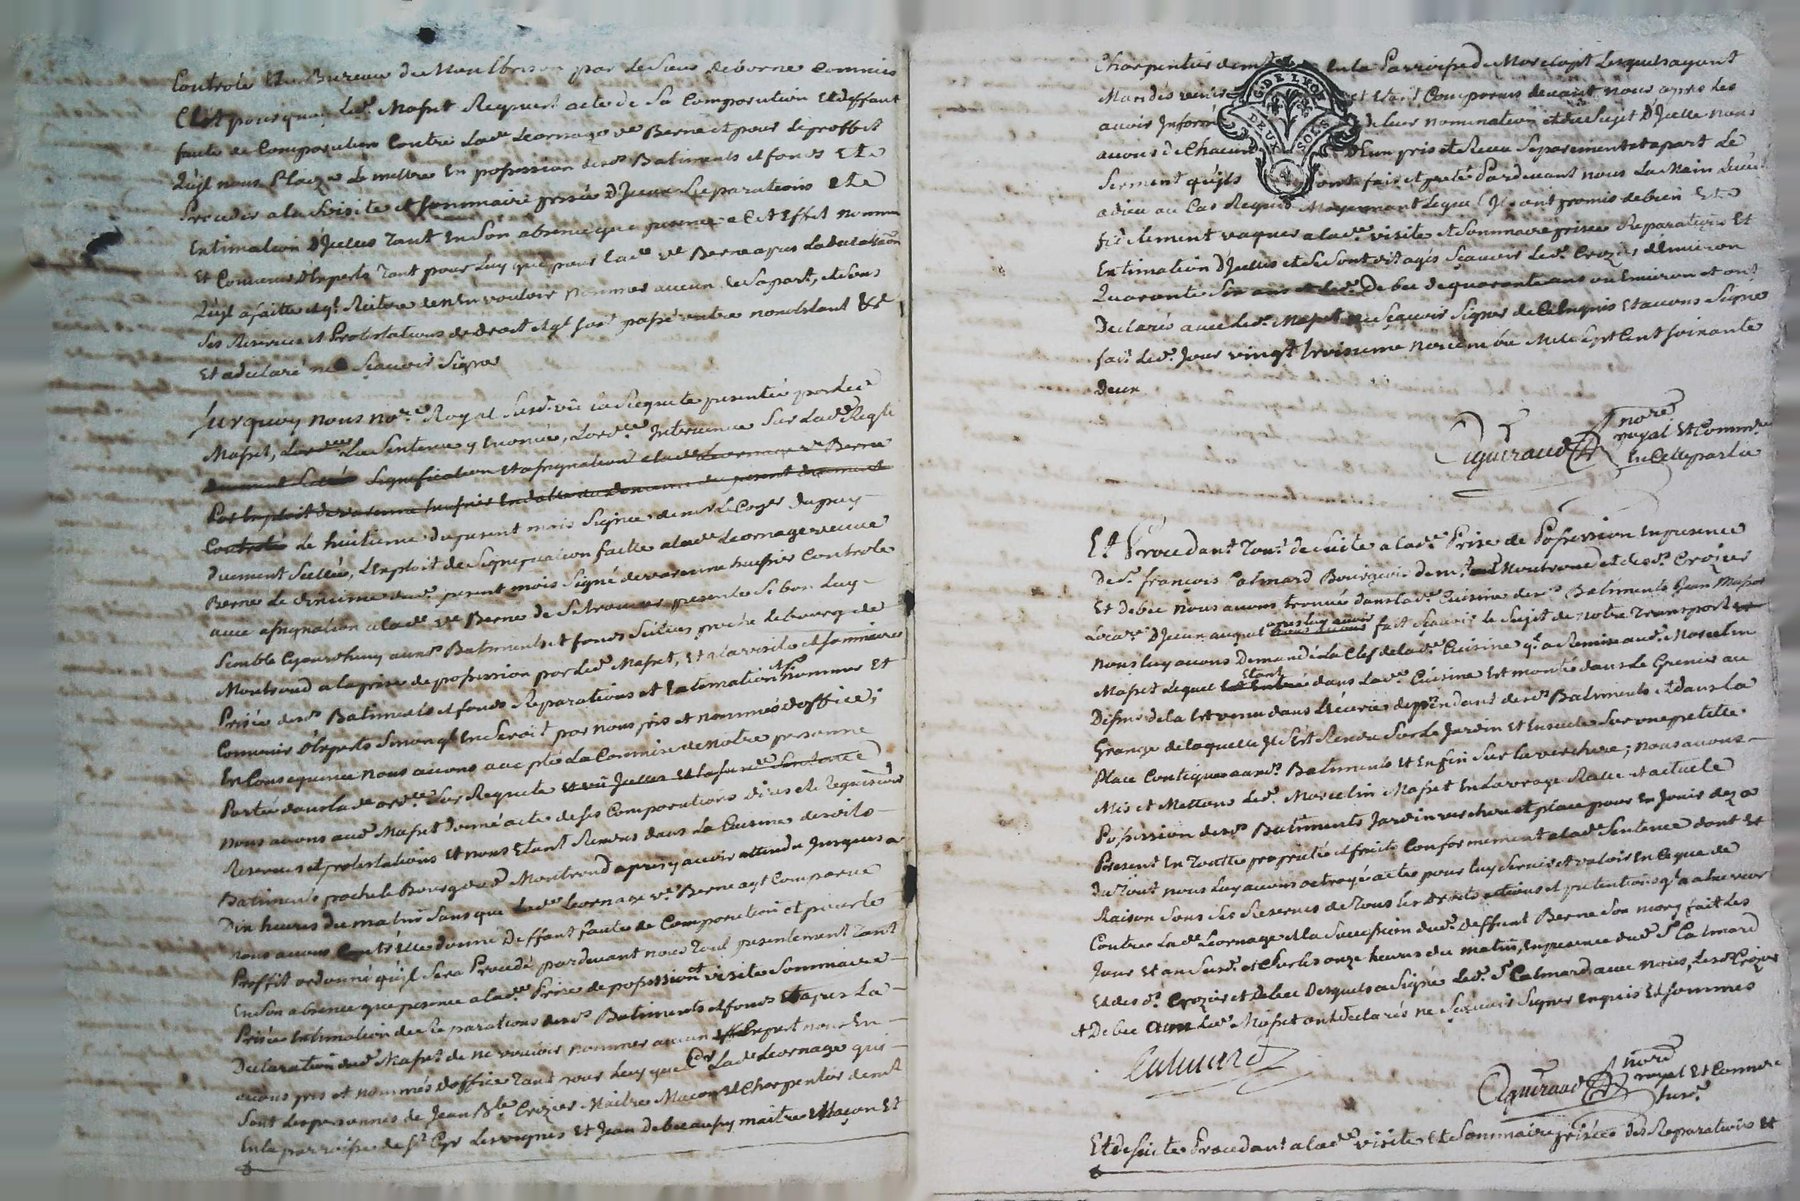 Controlé Et au Bureau de Montbrison par le Sieur deborne Commis
C'Est pourquoy led. Masset Requiert acte de Sa Comparution Et deffaut
faute de Comparution Contre lad.e Leornage v.e Berne et pour le proffit
qu'jl nous Plaize Le mettre En possession desd. Batiments et fonds Et
Proceder a la Visite et sommaire prisée d'Jceux Reparations Et
Entimation d'Jcelles Tant En Son absence que presence a Cet Effet nommer
Et Convenir d'Experts Tant pour Luy que pour lad.e v.e Berne apres La declaraõn
qu'jl a faitte et q.l Reitere de n'En vouloir nommer aucun de Sa part, et Sous
Ses Reserves et Protestations de droit
Et a declaré ne Sçavoir Signer
Surquoy nous no.re Royal Susd. vû la Requete presentée par led.
Masset, La Sentence y Enoncée, Lord.ce Intervenue Sur lad.e Req.te
Signification Et assignation a lad.e Leornage v.e Berne
Par Exploit de varenne huissier
Controlé Le huitieme du present mois Signée
duement Scellée, L'Exploit de Signification faitte a lad.e Leornage veuve
Berne Le dixieme dud. present mois Signé de varenne huissier Controlé
avec assignation a lad.e v.e Berne de Se trouver presente Si bon Luy
Semble Cejourd'huy auxd. Batiments et fonds Scitués proche le bourg de
Montrond a la prise de possession par led. Masset, Et a la visite et sommaire
Prisée desd. Batiments et fonds Reparations et Estimation nommer Et
Convenir d'Experts Sinon q.l En Seroit par nous pris et nommés d'office;
En Consequence nous avons accepté La Commission de notre personne
Portée dans lad.e ord.ce Sur Requete et vû Jcelles Et lad. Sentence
nous avons aud. Masset donné acte de Ses Comparutions dires et Requisitions
Reserves et protestations Et nous Etant Rendus dans La Cuisine desdits
Batiments proche le Bourg dud. Montrond apres y avoir attendu Jusques a
Dix heures du matin Sans que lad.e Leornage v.e Berne ayt Comparue
nous avons Contr'Elle donné Deffaut faute de Comparution et pour le
Proffit ordonné qu'jl Sera Procedé pardevant nous Tout presentement Tant
En Son absence que presence a lad.e Prise de possession et visite Sommaire
Prisée Entimation des Reparations desd. Batiments et fonds Et apres La
Declaration dud. Masset de ne vouloir nommer aucun Expert nous En
avons pris et nommés d'office Tant pour Luy que p.r Lad.e Leornage qui
Sont les personnes de Jean B.te Crozier Maitre Maçon Et Charpentier dem.t
En la parroisse de S.t Cyr Les vignes Et Jean Debec aussy maitre Maçon Et
Charpentier dem.t En la Parroisse de Marclopt Lesquels ayant
Mandés venir et Etant Comparus devant nous apres les
avoir Inform de leur nomination et du Sujet d'Jcelle nous
avons de Chacun D'Eux pris et Receu Separement et apart Le
Serment qu'jls ont fait et preté Pardevant nous La Main Levée
a dieu au Cas Requis Moyennant Lequel Jls ont promis de bien Et
fidelement vaquer a lad.e visite et Sommaire prisée Reparations Et
Entimation d'Jcelles et Se Sont dit agés Sçavoir led. Crozier d'Environ
Quarante Six ans et led. Debec de quarante ans ou Environ et ont
Declaré avec led. Masset ne Sçavoir Signer de Ce Enquis Et avons Signé
fait led. Jour vingt troisieme novembre Mille Sept Cent Soixante
Deux
G. DE LYON
DEUX SOLS
Aguiraud no.re
royal Et Comm.re
En Cette partie
Et Procedant Tout de Suitte a lad.e Prise de Possession En presence
De S.r françois Calmard Bourgeois dem.t a Montrond et desd. Crozier
Et debec nous avons trouvé dans lad.e Cuisine desd. Batiments Jean Masset
Locat.re d'Jceux auquel apres luy avoir fait Sçavoir le Sujet de notre Transport
nous luy avons Demandé La Clef de lad.e Cuisine q.l a Remise aud. Marcelin
Masset Lequel Etant Entré dans lad.e Cuisine Est monté dans Le Grenier au
Dessus de la Est venu dans L'Ecurie dependant desd. Batiments et dans La
Grange de laquelle Jl S'Est Rendu Sur Le Jardin Et Ensuite Sur une petite
Place Contigue auxd. Batiments Et Enfin Sur la verchere; nous avons
Mis et Mettons led. Marcelin Masset En La vraye Réelle et actuele
Possession desd. Batiments Jardin verchere et place pour En Jouir des a
Present En Toutte propriété et fruits Conformement a lad.e Sentence dont Et
du Tout nous luy avons octroyé acte pour luy Servir et valoir En Ce que de
Raison Sous Ses Reserves de Tous Ses droits actions et pretentions q.l a a be voir
Contre Lad.e Leornage et la Succession dud. Deffunt Berne Son mary fait Les
Jour Et an Susd. et Sur les onze heures du matin, En presence dud. S.r Calmard
Et desd. Crozier et Debec Desquels a Signé led. S.r Calmard avec nous, Lesd. Crozier
et Debec avec led. Masset ont declarés ne Sçavoir Signer Enquis Et Sommés
Calmard
Aguiraud no.re
royal Et Comm.re
Susd.
Et de Suite Procedant a lad.e visite Et Sommaire prisée des Reparations Et